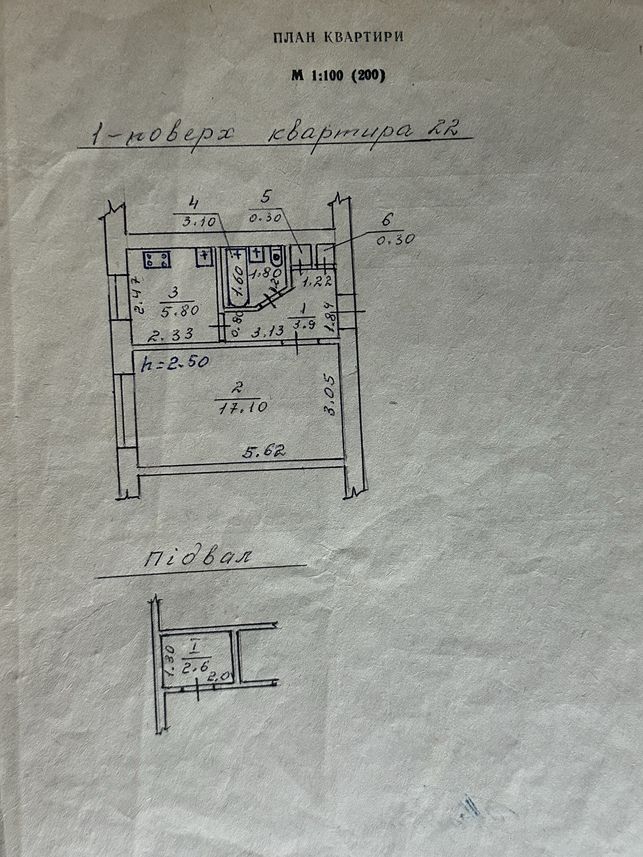 ПЛАН КВАРТИРИ
М 1:100 (200)
1-поверх квартира 22
4
3.10
5
0.30
6
0.30
2.47
3
5.80
2.33
1.60
1.80
1.20
0.80
3.13
1.22
1
3.9
1.84
h=2.50
2
17.10
3.05
5.62
Підвал
1.30
I
2.6
2.0